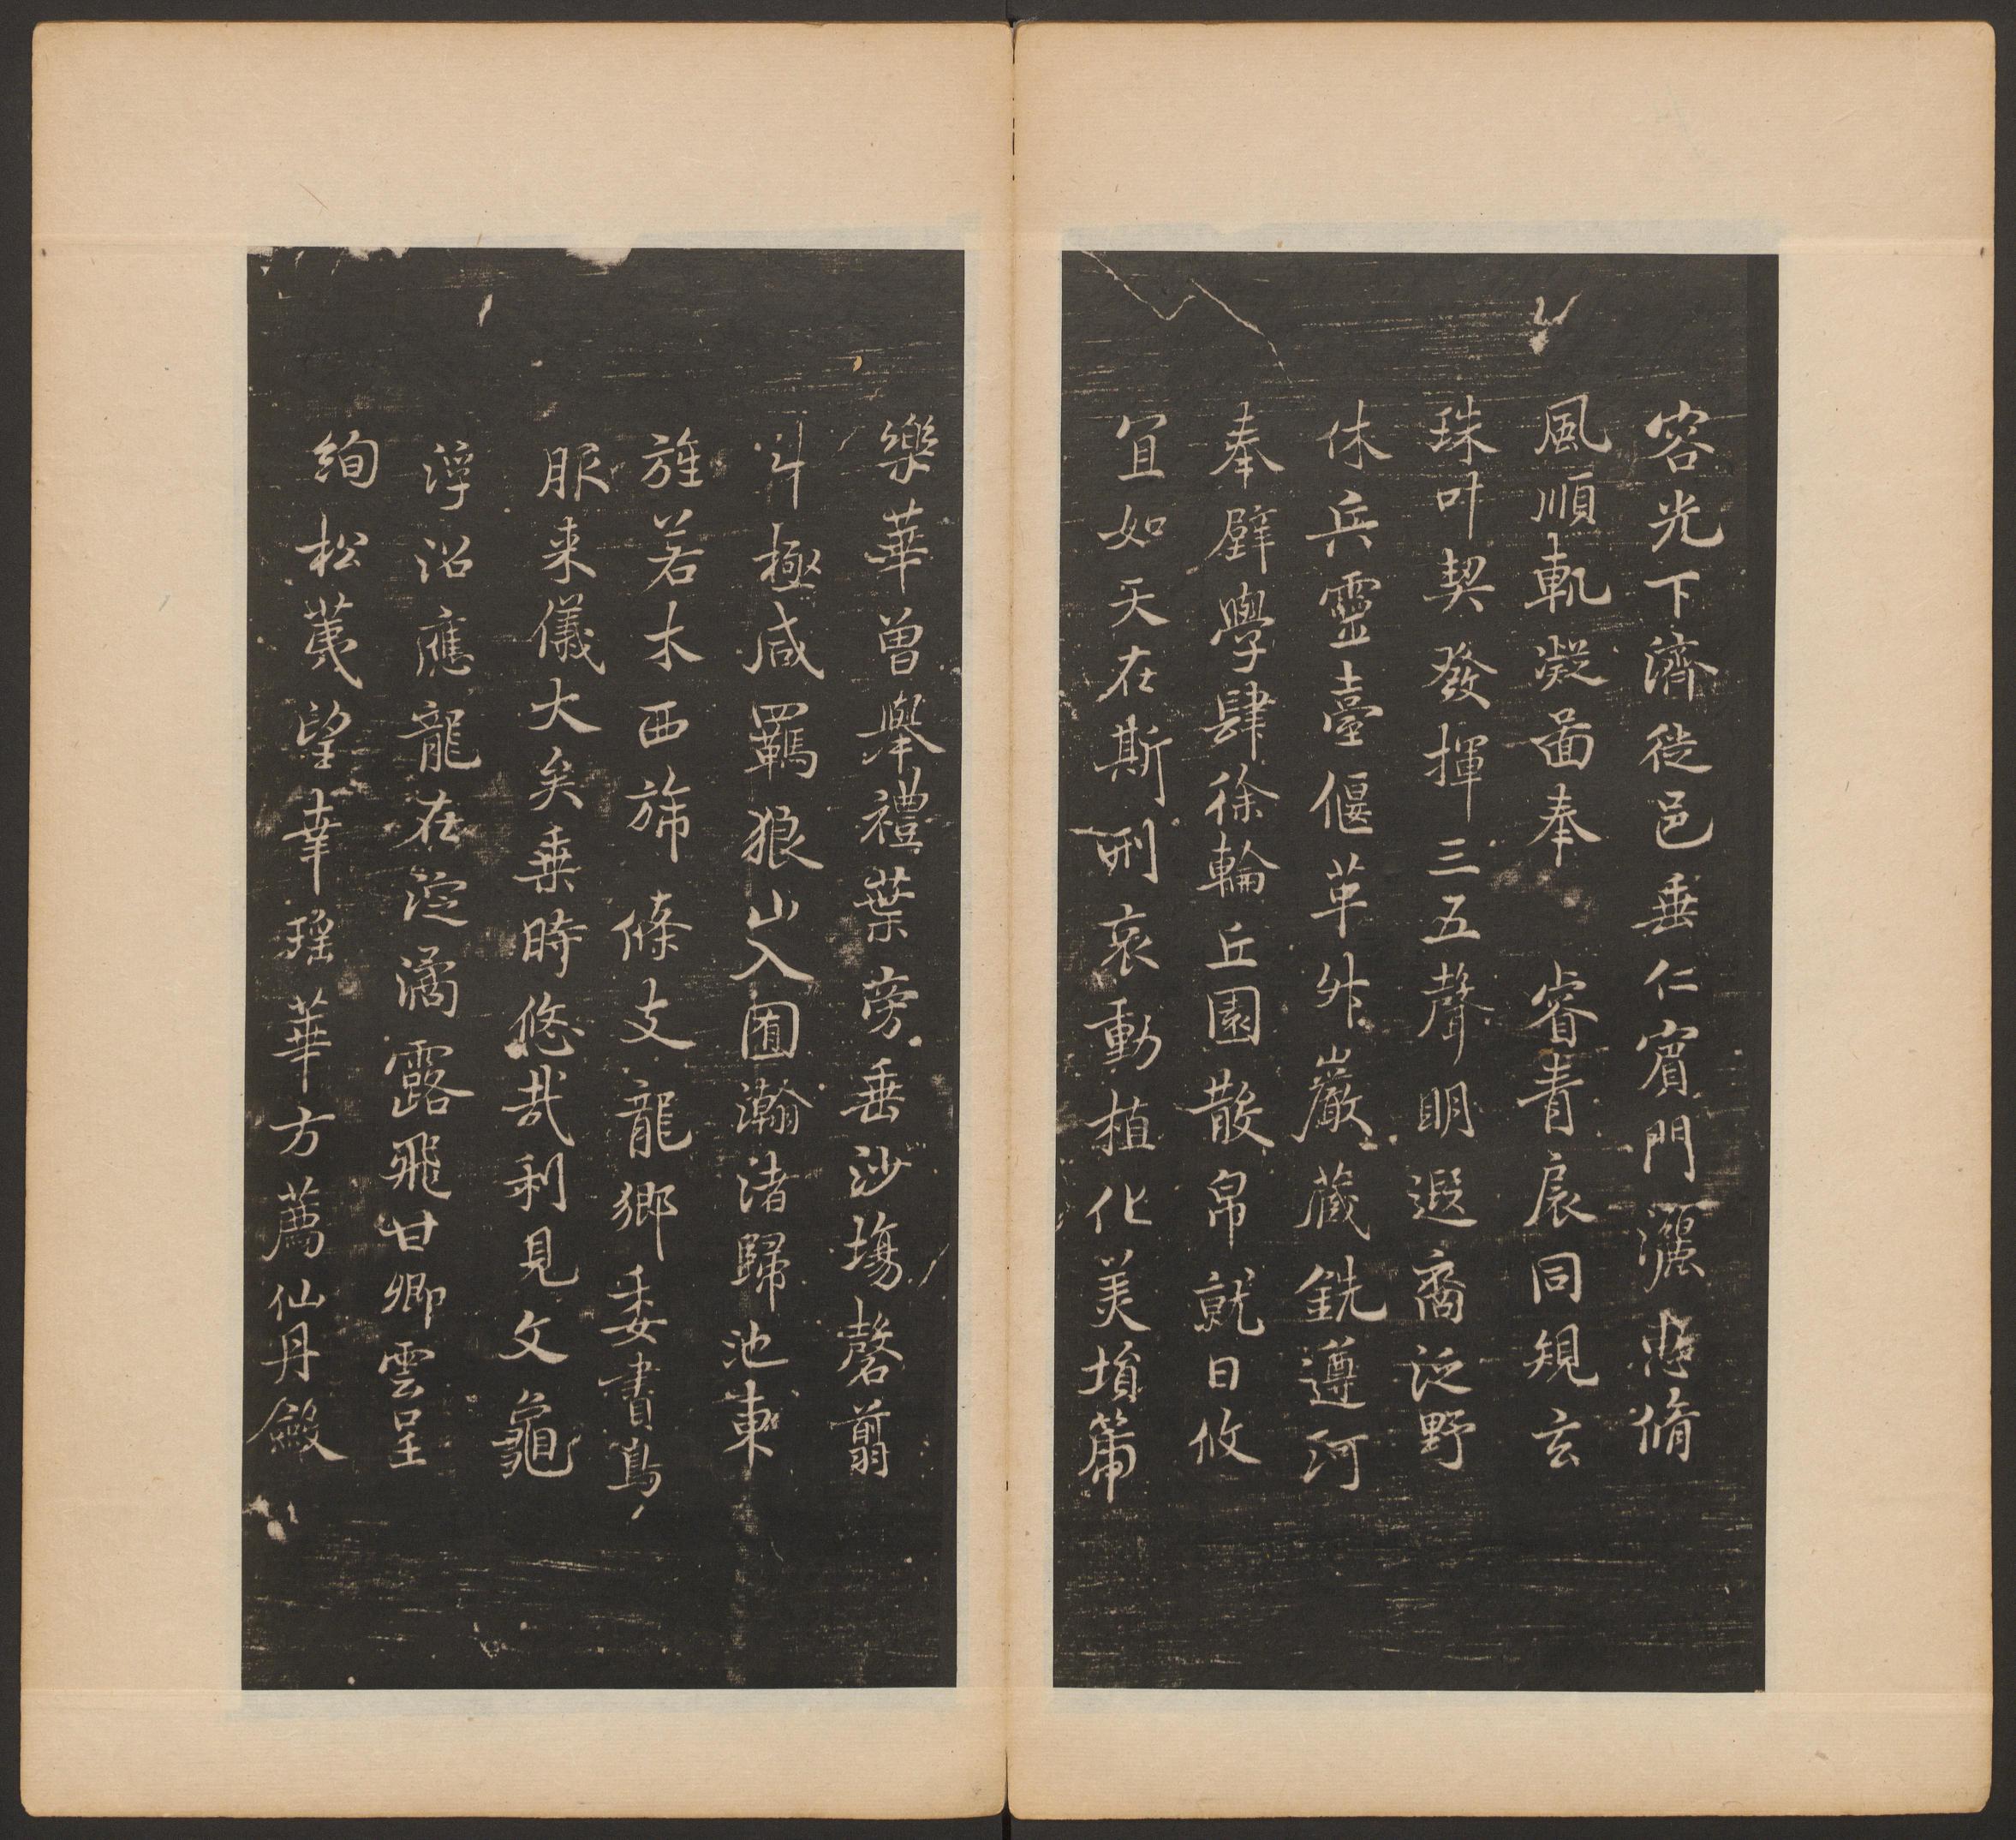 容光下濟徙邑垂仁賓門灑惠脩
風順軌凝圖奉 睿青扆同規玄
珠叶契發揮三五聲明遐裔泛野
休兵靈臺偃革舛巖藏銑遵河
奉璧學肆徐輪丘園散帛就日攸
宜如天在斯刑哀動植化美塤篪
樂華曾舉禮葉旁垂沙塲磬翦
斗極咸羈狼山入囿瀚渚歸池東
旌若木西旆條支龍鄉委書鳥
服来儀大矣乗時悠哉利見文龜
浮沼應龍在淀潏露飛甘卿雲呈
絢松荑望幸瑤華方薦仙丹斂